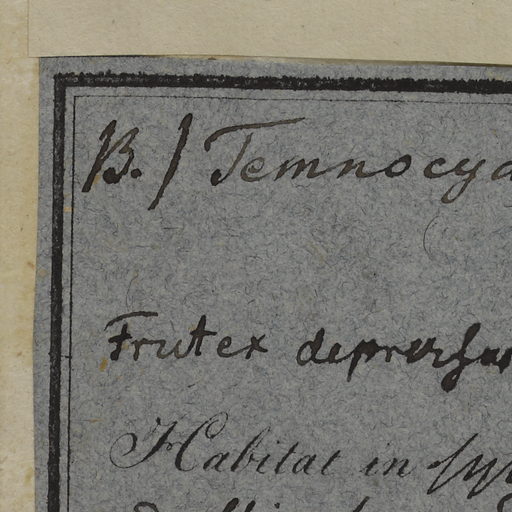 B. / Temnocya
Frutex depressus
Habitat in syl